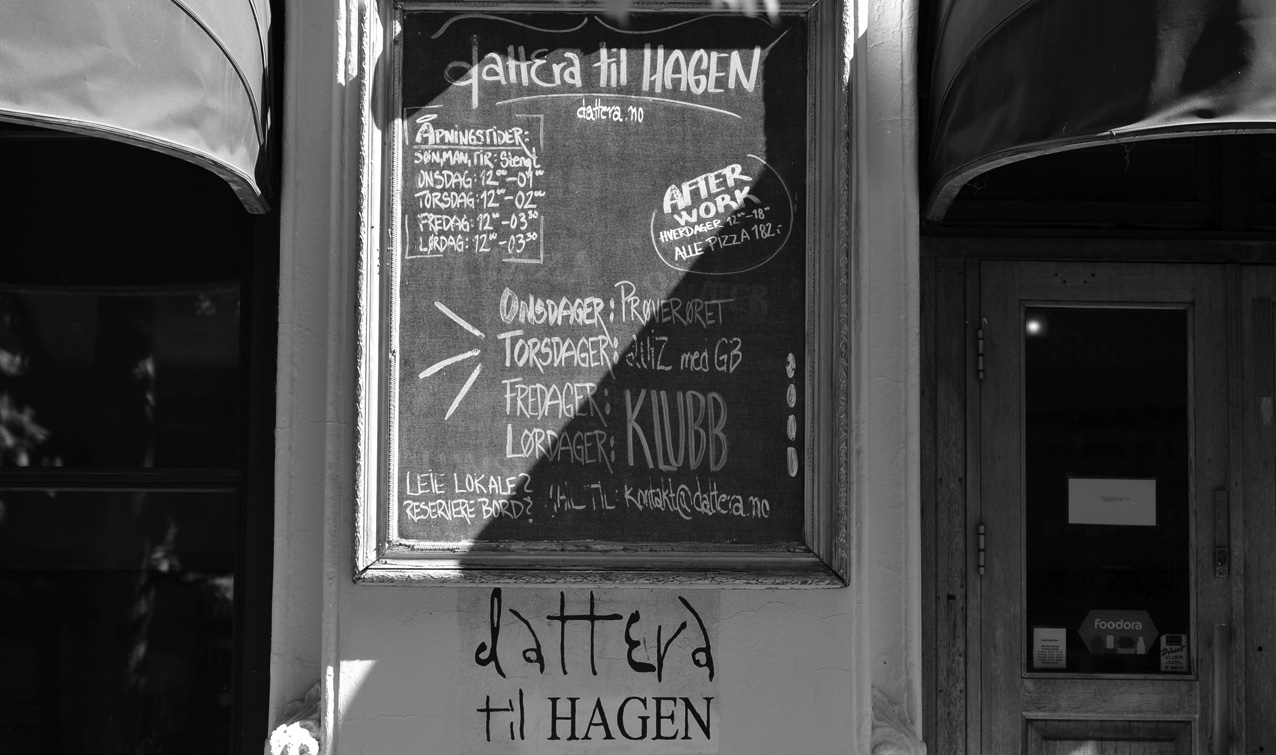 dattera til HAGEN
dattera.no
ÅPNINGSTIDER:
SØN, MAN, TIR: Stengt
ONSDAG: 12⁰⁰-01⁰⁰
TORSDAG: 12⁰⁰-02⁰⁰
FREDAG: 12⁰⁰-03³⁰
LØRDAG: 12⁰⁰-03³⁰
AFTER
WORK
HVERDAGER 12⁰⁰-18⁰⁰
ALLE PIZZA 182,-
ONSDAGER: PRØVERØRET
TORSDAGER: med GB
FREDAGER:
LØRDAGER: KLUBB
LEIE LOKALE?
RESERVERE BORD? TIL: kontakt@dattera.no
dattera
til HAGEN
foodora